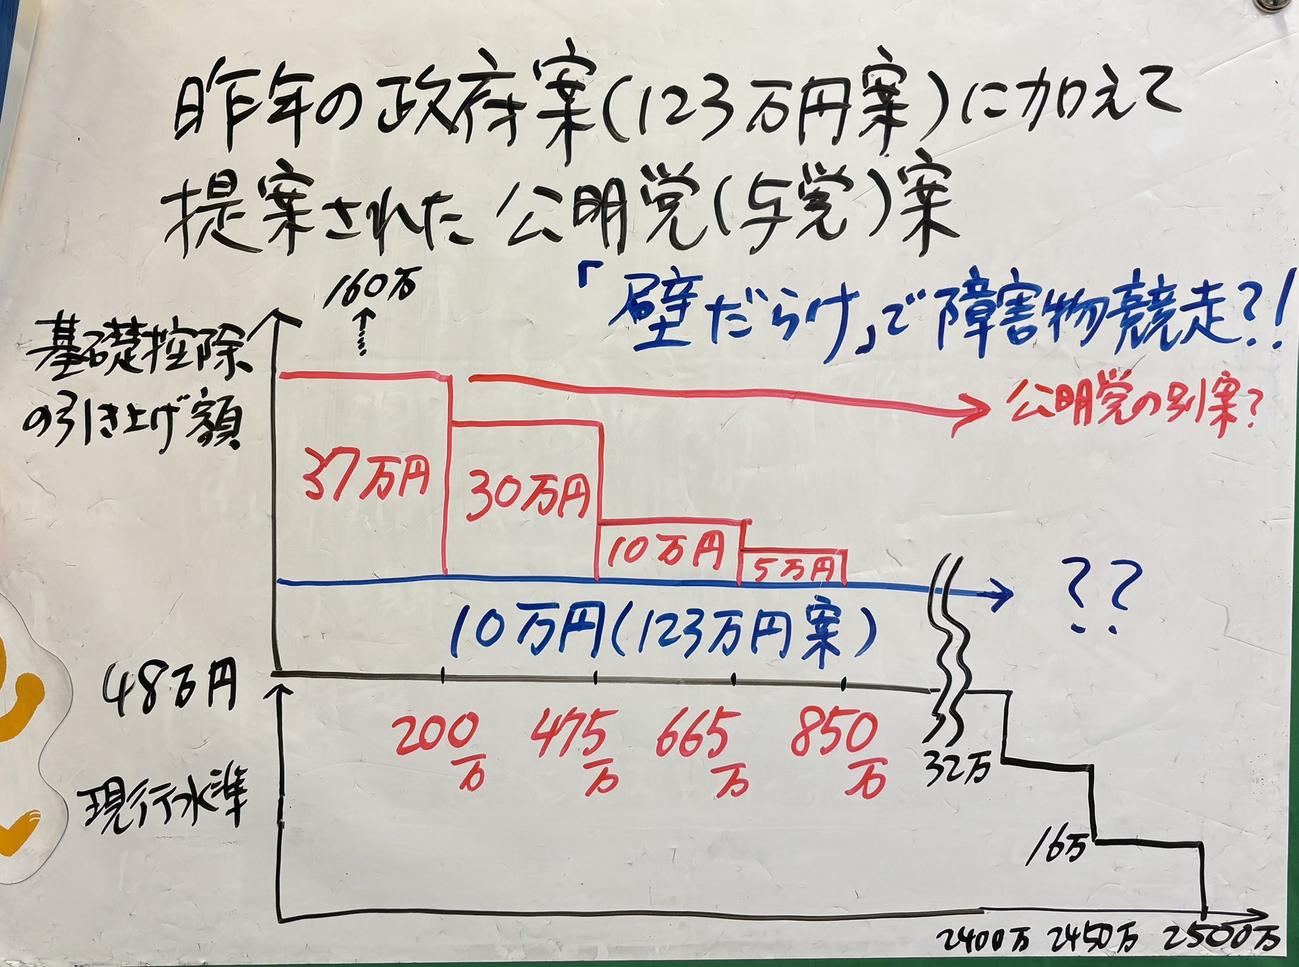 昨年の政府案(123万円案)に加えて
提案された公明党(与党)案
160万
「壁だらけ」で障害物競走?!
基礎控除
の引き上げ額
公明党の別案?
37万円
30万円
10万円
5万円
10万円(123万円案)
??
48万円
200万
475万
665万
850万
現行水準
32万
16万
2400万 2450万 2500万